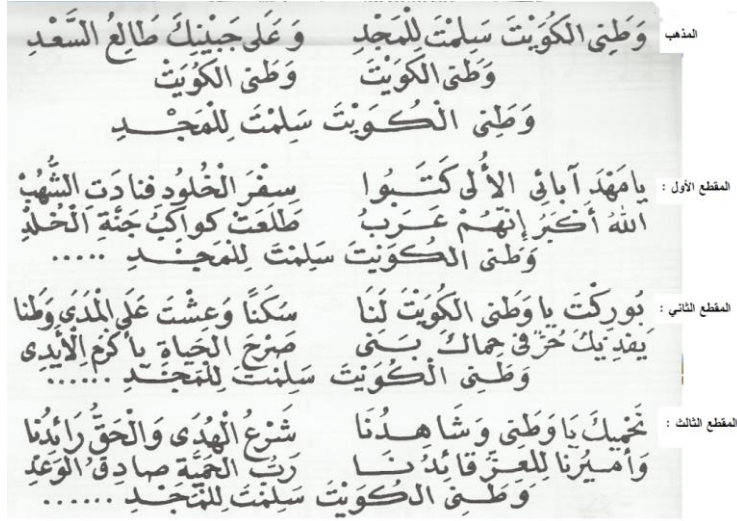 المذهب
وَطَنِى الكُوَيْتَ سَلِمْتَ لِلْمَجْدِ وَعَلى جَبِيْنِكَ طَالِعُ السَّعْدِ
وَطَنى الكُوَيْتَ وَطَنى الكُوَيْتْ
وَطَنِى الْكُوَيْتَ سَلِمْتَ لِلْمَجْدِ
المقطع الأول :
يا مَهْدَ آبائى الأُلى كَتَبُوا سِفْرَ الْخُلُودِ فنادَتِ الشُّهُبُ
اللهُ أَكْبَرُ إنَّهُمْ عَرَبُ طَلَعَتْ كَواكِبُ جَنَّةِ الْخُلْدِ
وَطَنى الكُوَيْتَ سَلِمْتَ لِلْمَجْدِ .....
المقطع الثاني :
بُورِكْتَ يا وَطَنى الكُوَيْتَ لَنَا سَكَنًا وَعِشْتَ عَلَى الْمَدَى وَطَنا
يَفْديكَ حُرٌّ فى حِماكَ بَنَى صَرْحَ الْحَياةِ بأكْرَمِ الْأَيْدِى
وَطَنِى الْكُوَيْتَ سَلِمْتَ لِلْمَجْدِ ......
المقطع الثالث :
نَحْمِيكَ يَا وَطَنى وَشَاهِدُنَا شَرْعُ الْهُدَى وَالْحَقُّ رَائِدُنا
وَأَمِيْرُنا لِلْعِزِّ قائِدُنَا رَبُّ الْحَمِيَّةِ صادِقُ الْوَعْدِ
وَطَنِى الكُوَيْتَ سَلِمْتَ لِلْمَجْدِ ......